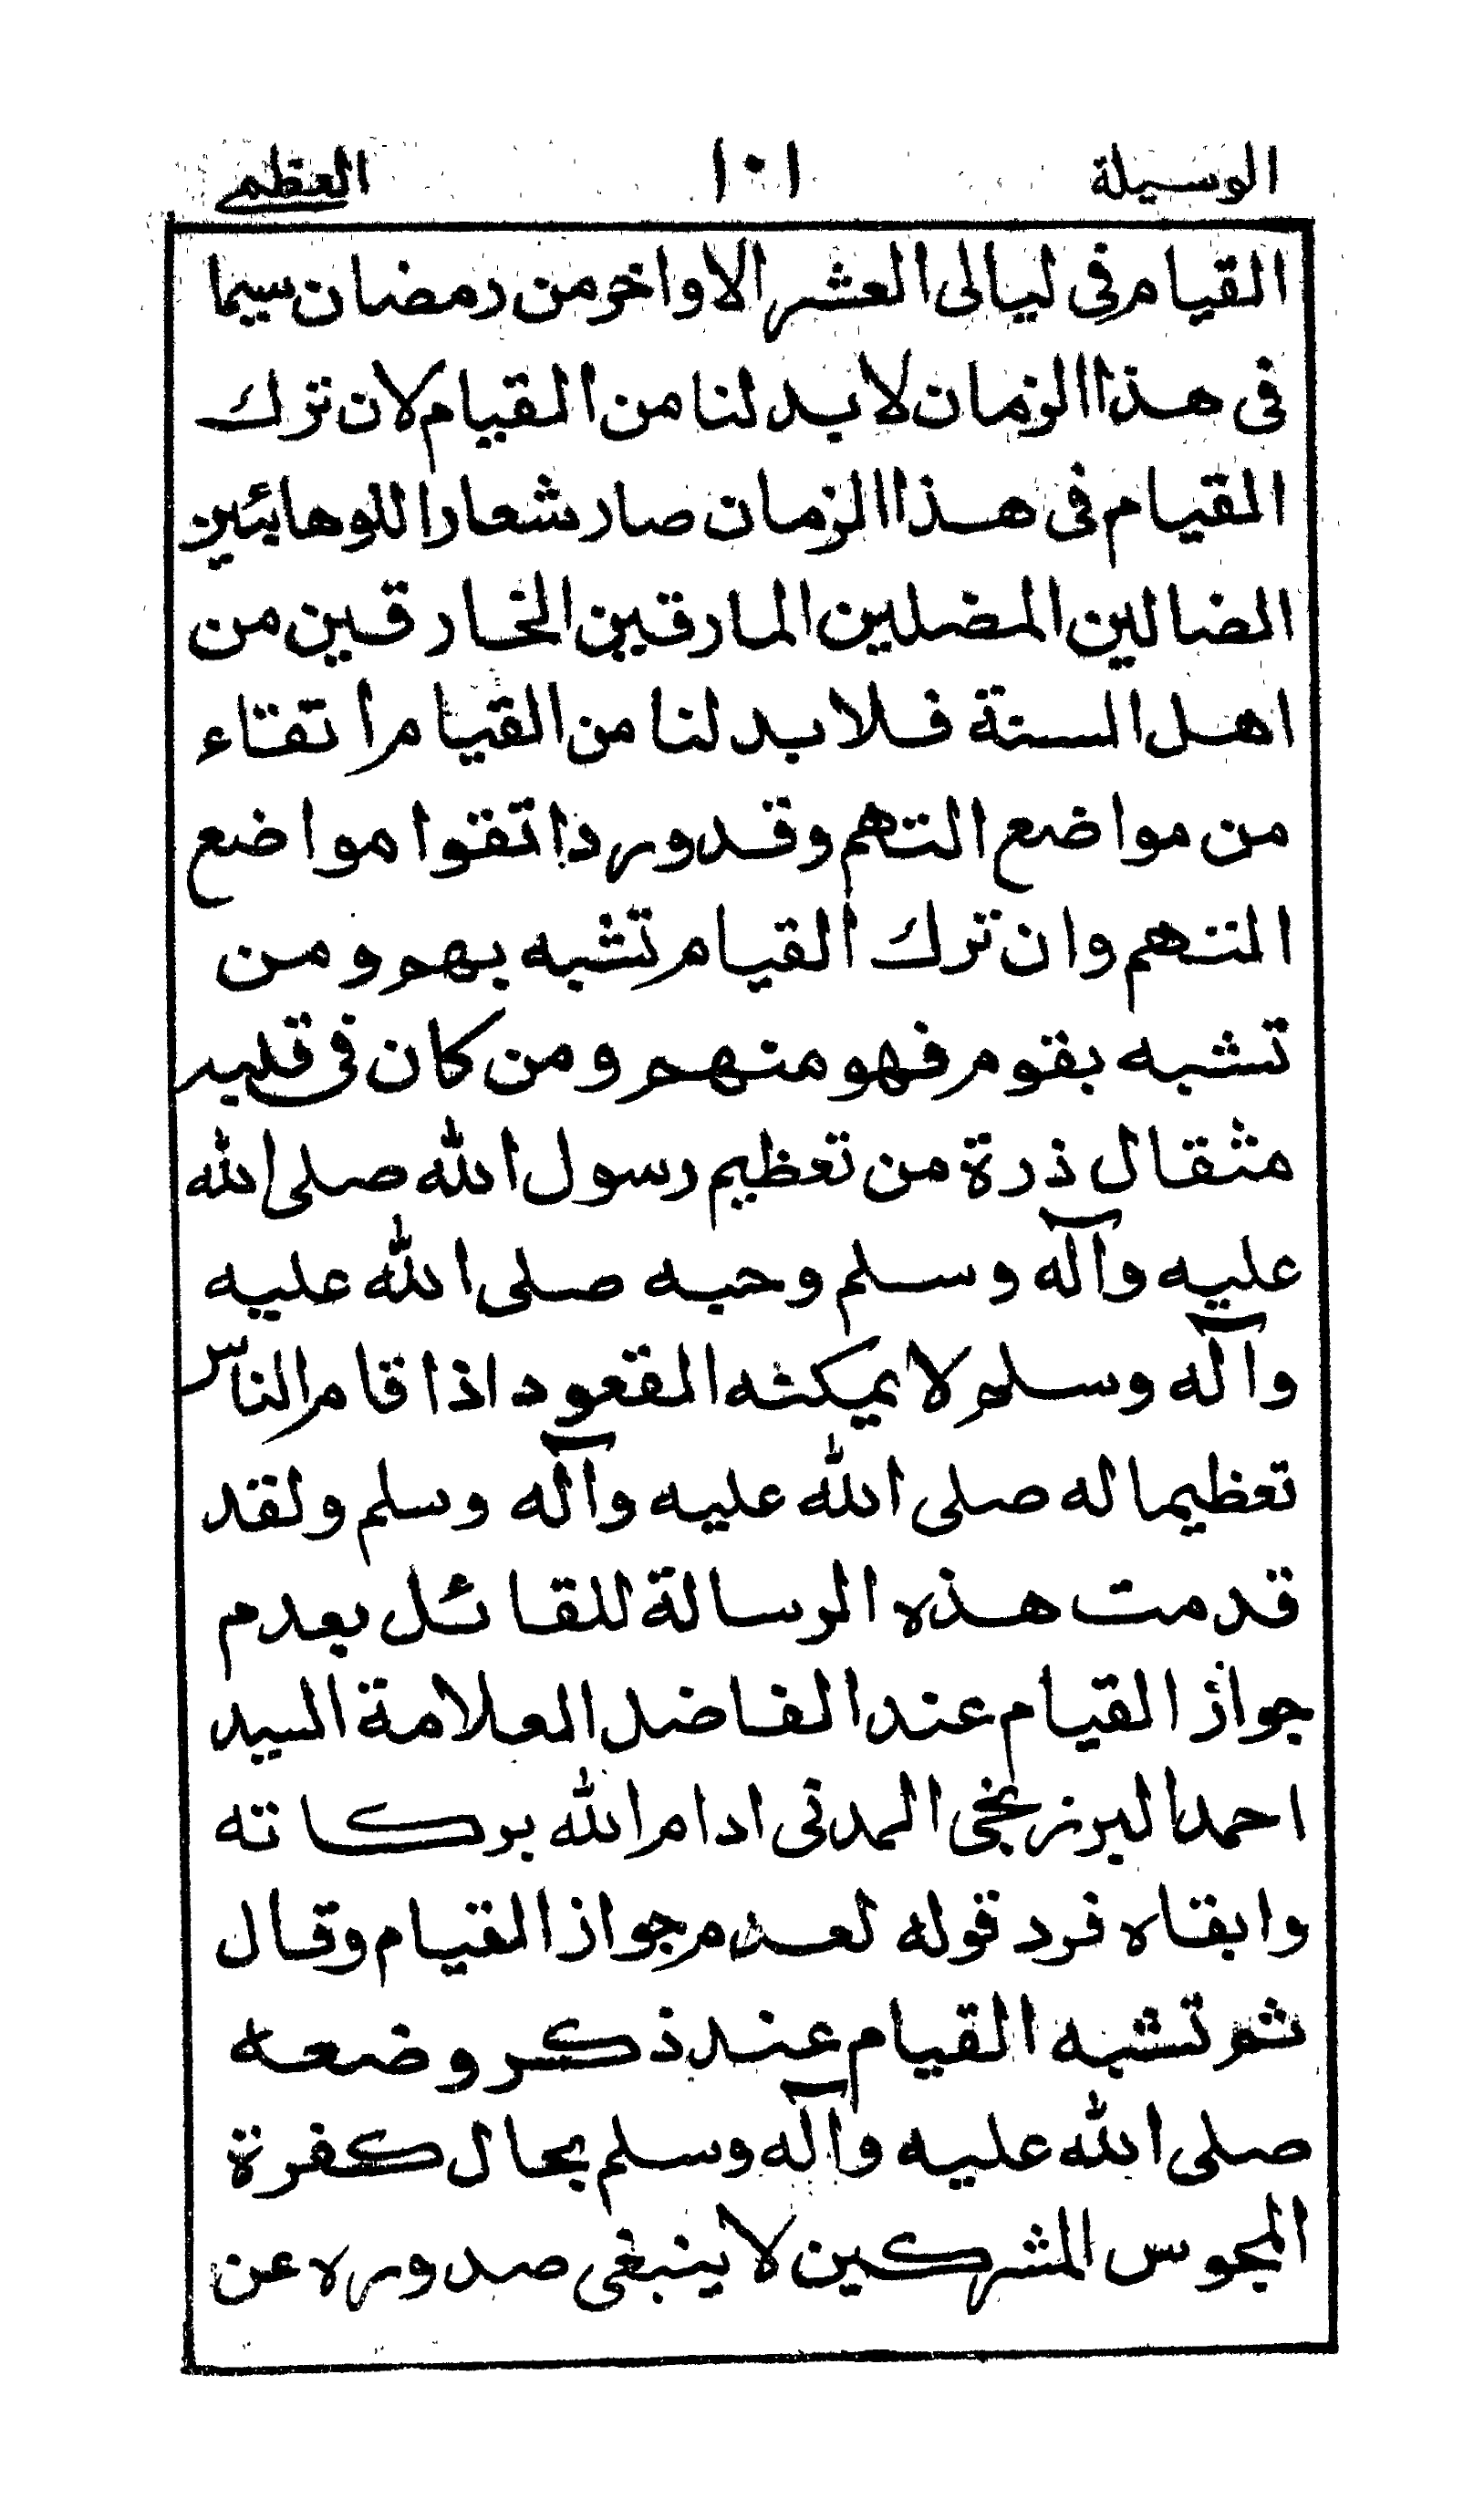 الوسيلة ١٠١ العظمى
القيام في ليالى العشر الاواخر من رمضان سيما
فى هذا الزمان لابد لنا من القيام لان ترك
القيام فى هذا الزمان صار شعارا للوهابئين
الضالين المضلين المارقين الخارقين من
اهل السنة فلابد لنا من القيام اتقاء
من مواضع التهم وقد ورد اتقوا مواضع
التهم وان ترك القيام تشبه بهم ومن
تشبه بقوم فهو منهم ومن كان فى قلبه
مثقال ذرة من تعظيم رسول الله صلى الله
عليه وآله وسلم وحبه صلى الله عليه
وآله وسلم لا يمكنه القعود اذا قام الناس
تعظيما له صلى الله عليه وآله وسلم ولقد
قدمت هذه الرسالة للقائل بعدم
جواز القيام عند الفاضل العلامة السيد
احمد البرزنجى المدنى ادام الله بركاته
وابقاه فرد قوله لعدم جواز القيام وقال
ثم تشبه القيام عند ذكر وضعه
صلى الله عليه وآله وسلم بحال كفرة
المجوس المشركين لا ينبغى صدوره عن